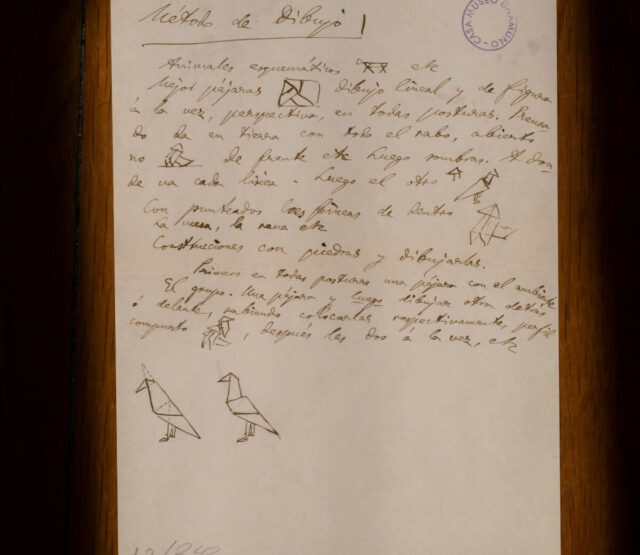 Método de Dibujo
CASA-MUSEO UNAMUNO
Animales esquemáticos etc
Mejor pájaras dibujo lineal y de figura
á la vez, perspectiva, en todas posturas.
do da en tierra con todo el rabo, abierto
no de frente etc Luego sombras. A don-
de va cada línea. Luego el otro
Con punteados las líneas de dentro
La mesa, la rana etc
Construcciones con piedras y dibujarlas.
Primero en todas posturas una pájara con el ambiente
El grupo. Una pájara y luego dibujar otra detrás
ó delante, sabiendo colocarlas respectivamente, perfil
compuesto, después las dos á la vez, etc